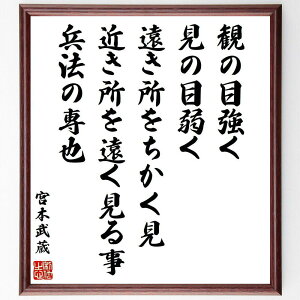 観の目強く
見の目弱く
遠き所をちかく見
近き所を遠く見る事
兵法の専也
宮本武蔵